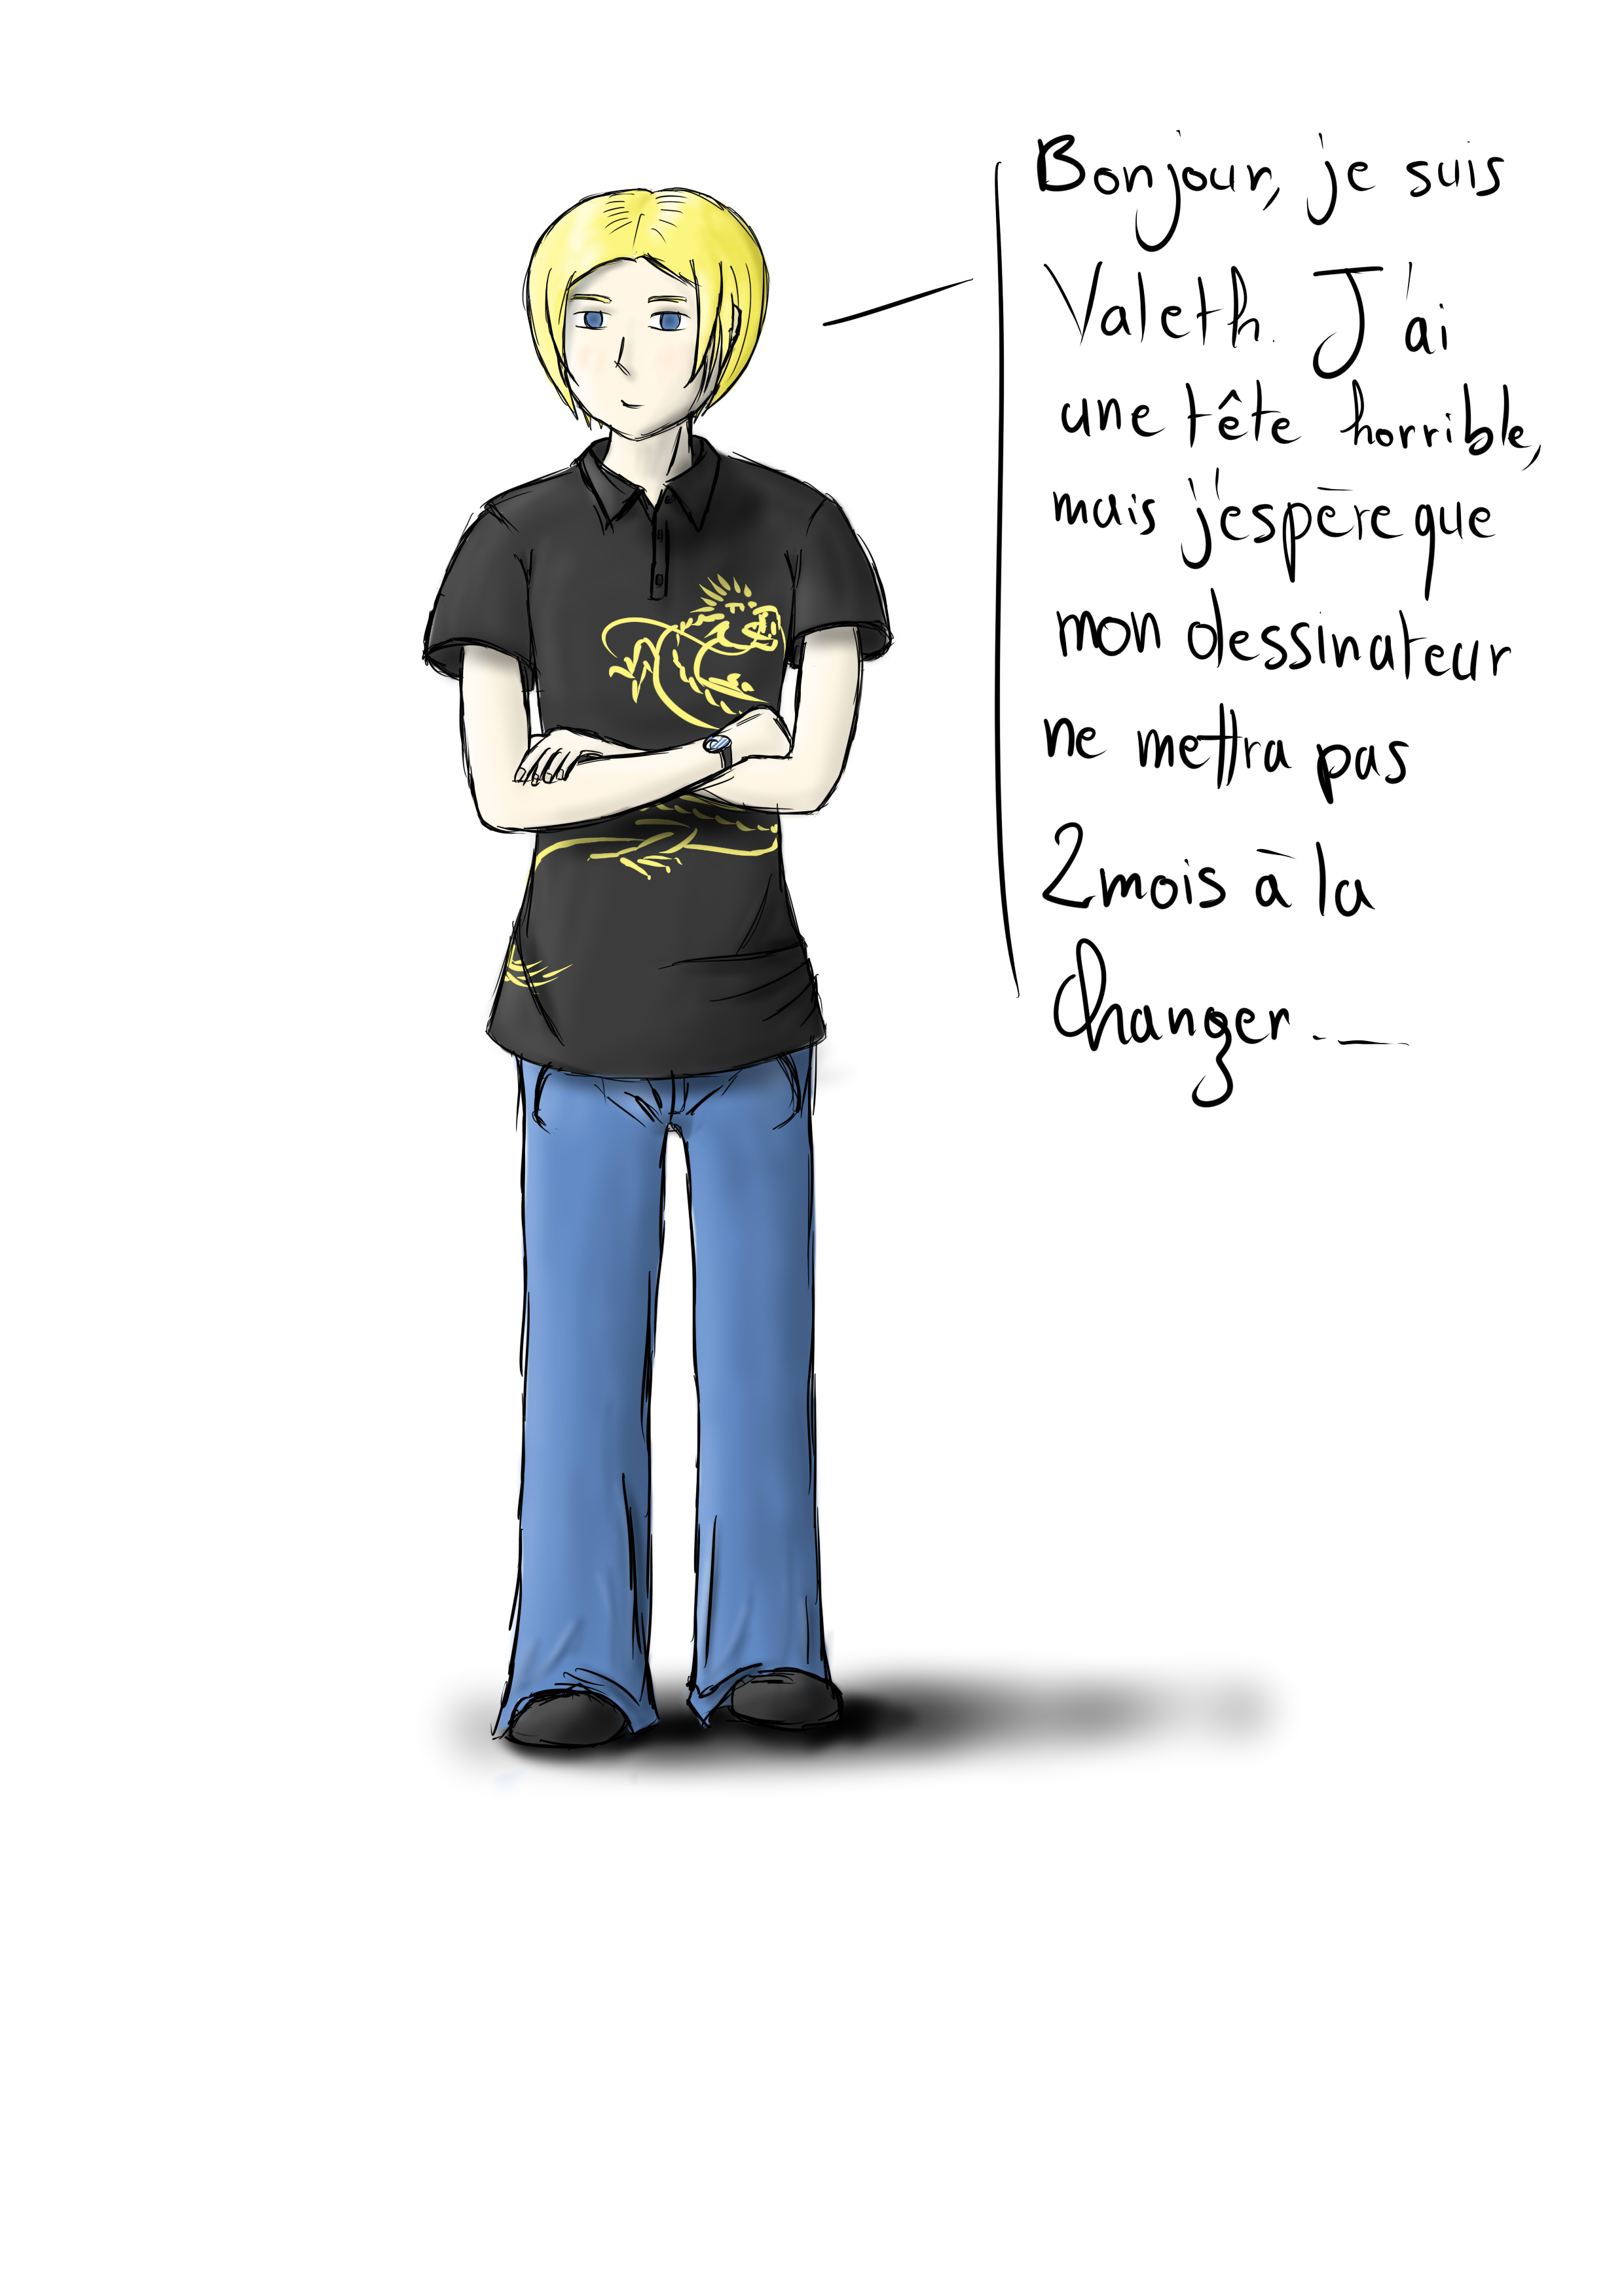 Bonjour, je suis
Valeth. J'ai
une tête horrible,
mais j'espère que
mon dessinateur
ne mettra pas
2 mois à la
changer ._